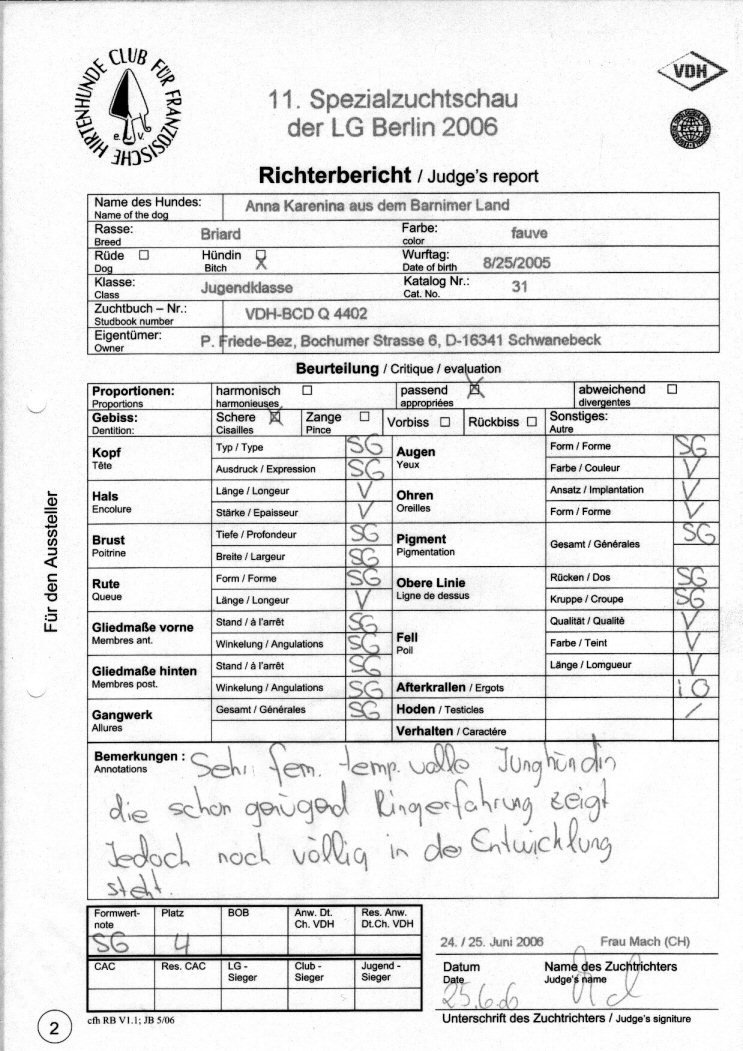 CLUB FÜR FRANZÖSISCHE HIRTENHUNDE
e. V.
VDH
FCI
11. Spezialzuchtschau
der LG Berlin 2006
Richterbericht / Judge's report
Name des Hundes: Anna Karenina aus dem Barnimer Land
Name of the dog
Rasse: Briard Farbe: fauve
Breed color
Rüde ☐ Hündin ☒ Wurftag: 8/25/2005
Dog Bitch Date of birth
Klasse: Jugendklasse Katalog Nr.: 31
Class Cat. No.
Zuchtbuch – Nr.: VDH-BCD Q 4402
Studbook number
Eigentümer: P. Friede-Bez, Bochumer Strasse 6, D-16341 Schwanebeck
Owner
Beurteilung / Critique / evaluation
Proportionen: harmonisch ☐ passend ☒ abweichend ☐
Proportions harmonieuses appropriées divergentes
Gebiss: Schere ☒ Zange ☐ Vorbiss ☐ Rückbiss ☐ Sonstiges:
Dentition: Cisailles Pince Autre
Kopf Typ / Type SG Augen Form / Forme SG
Tête Ausdruck / Expression SG Yeux Farbe / Couleur V
Hals Länge / Longeur V Ohren Ansatz / Implantation V
Encolure Stärke / Epaisseur V Oreilles Form / Forme V
Brust Tiefe / Profondeur SG Pigment Gesamt / Générales SG
Poitrine Breite / Largeur SG Pigmentation
Rute Form / Forme SG Obere Linie Rücken / Dos SG
Queue Länge / Longeur V Ligne de dessus Kruppe / Croupe SG
Gliedmaße vorne Stand / à l'arrêt SG Fell Qualität / Qualité V
Membres ant. Winkelung / Angulations SG Poil Farbe / Teint V
Gliedmaße hinten Stand / à l'arrêt SG Länge / Lomgueur V
Membres post. Winkelung / Angulations SG Afterkrallen / Ergots i O
Gangwerk Gesamt / Générales SG Hoden / Testicles /
Allures Verhalten / Caractére
Bemerkungen : Sehr fem. temp. volle Junghündin
Annotations
die schon genügend Ringerfahrung zeigt
Jedoch noch völlig in der Entwicklung
steht.
Formwert-note Platz BOB Anw. Dt. Ch. VDH Res. Anw. Dt.Ch. VDH
SG 4
CAC Res. CAC LG - Sieger Club - Sieger Jugend - Sieger
24. / 25. Juni 2006 Frau Mach (CH)
Datum Name des Zuchtrichters
Date Judge's name
25.6.06
Unterschrift des Zuchtrichters / Judge's signiture
Für den Aussteller
2
cfh RB V1.1; JB 5/06